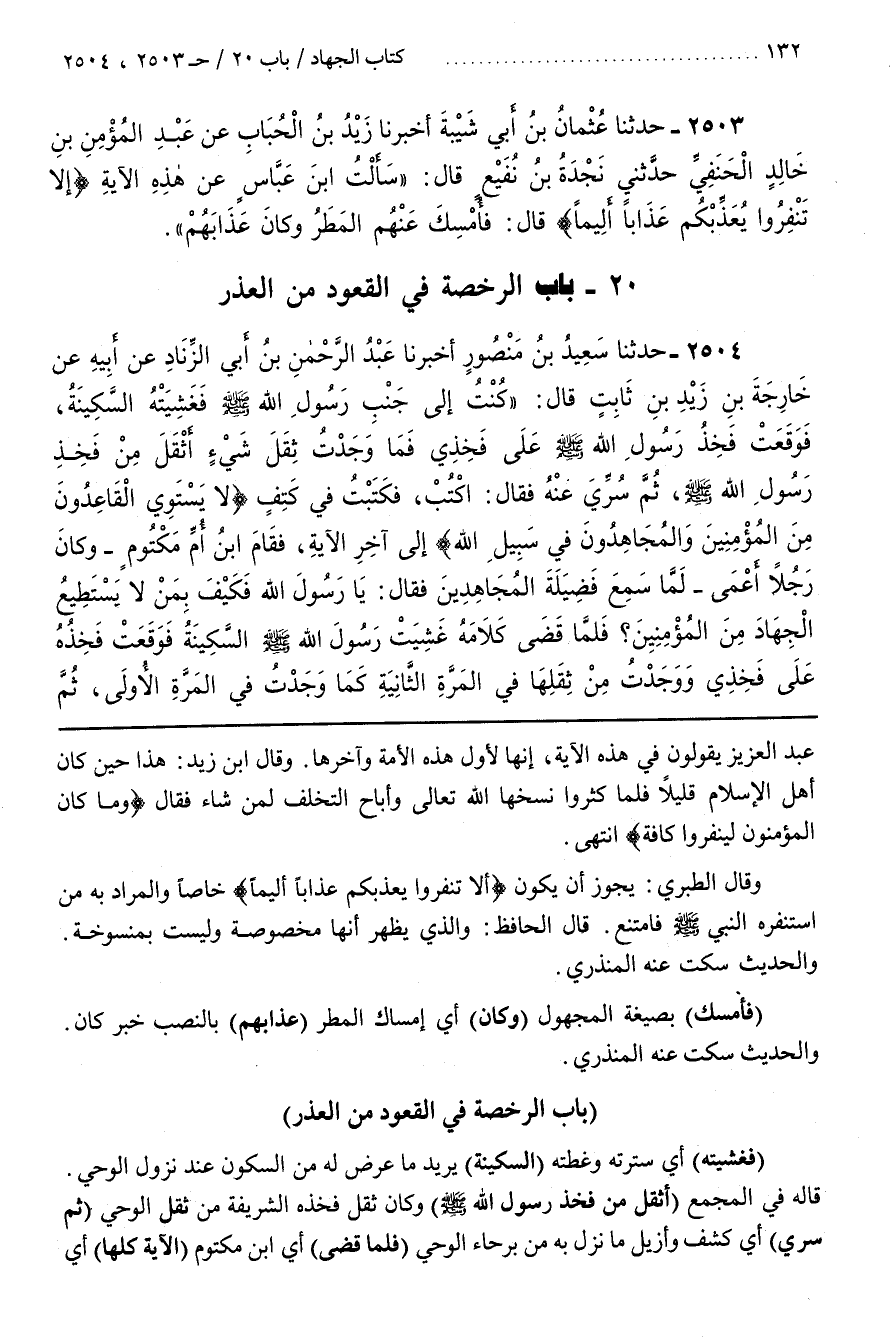 ١٣٢ ........................................ كتاب الجهاد / باب ٢٠ / حـ ٢٥٠٣ ، ٢٥٠٤
٢٥٠٣ ـ حدثنا عُثْمانُ بنُ أَبي شَيْبَةَ أخبرنا زَيْدُ بنُ الْحُبَابِ عن عَبْدِ المُؤْمِنِ بنِ
خَالِدٍ الْحَنَفِيِّ حدَّثني نَجْدَةُ بنُ نُفَيْعٍ قال: «سَأَلْتُ ابنَ عَبَّاسٍ عن هٰذِهِ الآيةِ ﴿إلا
تَنْفِرُوا يُعَذِّبْكُم عَذَاباً أَلِيماً﴾ قال: فأُمْسِكَ عَنْهُم المَطَرُ وكانَ عَذَابَهُمْ».
٢٠ ـ باب الرخصة في القعود من العذر
٢٥٠٤ ـ حدثنا سَعِيدُ بنُ مَنْصُورٍ أخبرنا عَبْدُ الرَّحْمٰنِ بنُ أَبي الزِّنَادِ عن أَبِيهِ عن
خَارِجَةَ بنِ زَيْدِ بنِ ثَابِتٍ قال: «كُنْتُ إلى جَنْبِ رَسُولِ الله ﷺ فَغَشِيَتْهُ السَّكِينَةُ،
فَوَقَعَتْ فَخِذُ رَسُولِ الله ﷺ عَلَى فَخِذِي فَمَا وَجَدْتُ ثِقَلَ شَيْءٍ أَثْقَلَ مِنْ فَخِذِ
رَسُولِ الله ﷺ، ثُمَّ سُرِّيَ عَنْهُ فقال: اكْتُبْ، فَكَتَبْتُ في كَتِفٍ ﴿لا يَسْتَوِي الْقَاعِدُونَ
مِنَ المُؤْمِنِينَ وَالمُجَاهِدُونَ في سَبِيلِ الله﴾ إلى آخِرِ الآيةِ، فقَامَ ابنُ أُمِّ مَكْتُومٍ ـ وكانَ
رَجُلاً أَعْمَى ـ لَمَّا سَمِعَ فَضِيلَةَ المُجَاهِدِينَ فقال: يَا رَسُولَ الله فَكَيْفَ بِمَنْ لا يَسْتَطِيعُ
الْجِهَادَ مِنَ المُؤْمِنِينَ؟ فَلمَّا قَضَى كَلَامَهُ غَشِيَتْ رَسُولَ الله ﷺ السَّكِينَةُ فَوَقَعَتْ فَخِذُهُ
عَلَى فَخِذِي وَوَجَدْتُ مِنْ ثِقَلِهَا في المَرَّةِ الثَّانِيَةِ كَمَا وَجَدْتُ في المَرَّةِ الأُولَى، ثُمَّ
عبد العزيز يقولون في هذه الآية، إنها لأول هذه الأمة وآخرها. وقال ابن زيد: هذا حين كان
أهل الإسلام قليلاً فلما كثروا نسخها الله تعالى وأباح التخلف لمن شاء فقال ﴿وما كان
المؤمنون لينفروا كافة﴾ انتهى.
وقال الطبري: يجوز أن يكون ﴿ألا تنفروا يعذبكم عذاباً أليماً﴾ خاصاً والمراد به من
استنفره النبي ﷺ فامتنع. قال الحافظ: والذي يظهر أنها مخصوصة وليست بمنسوخة.
والحديث سكت عنه المنذري.
(فأمسك) بصيغة المجهول (وكان) أي إمساك المطر (عذابهم) بالنصب خبر كان.
والحديث سكت عنه المنذري.
(باب الرخصة في القعود من العذر)
(فغشيته) أي سترته وغطته (السكينة) يريد ما عرض له من السكون عند نزول الوحي.
قاله في المجمع (أثقل من فخذ رسول الله ﷺ) وكان ثقل فخذه الشريفة من ثقل الوحي (ثم
سري) أي كشف وأزيل ما نزل به من برحاء الوحي (فلما قضى) أي ابن مكتوم (الآية كلها) أي